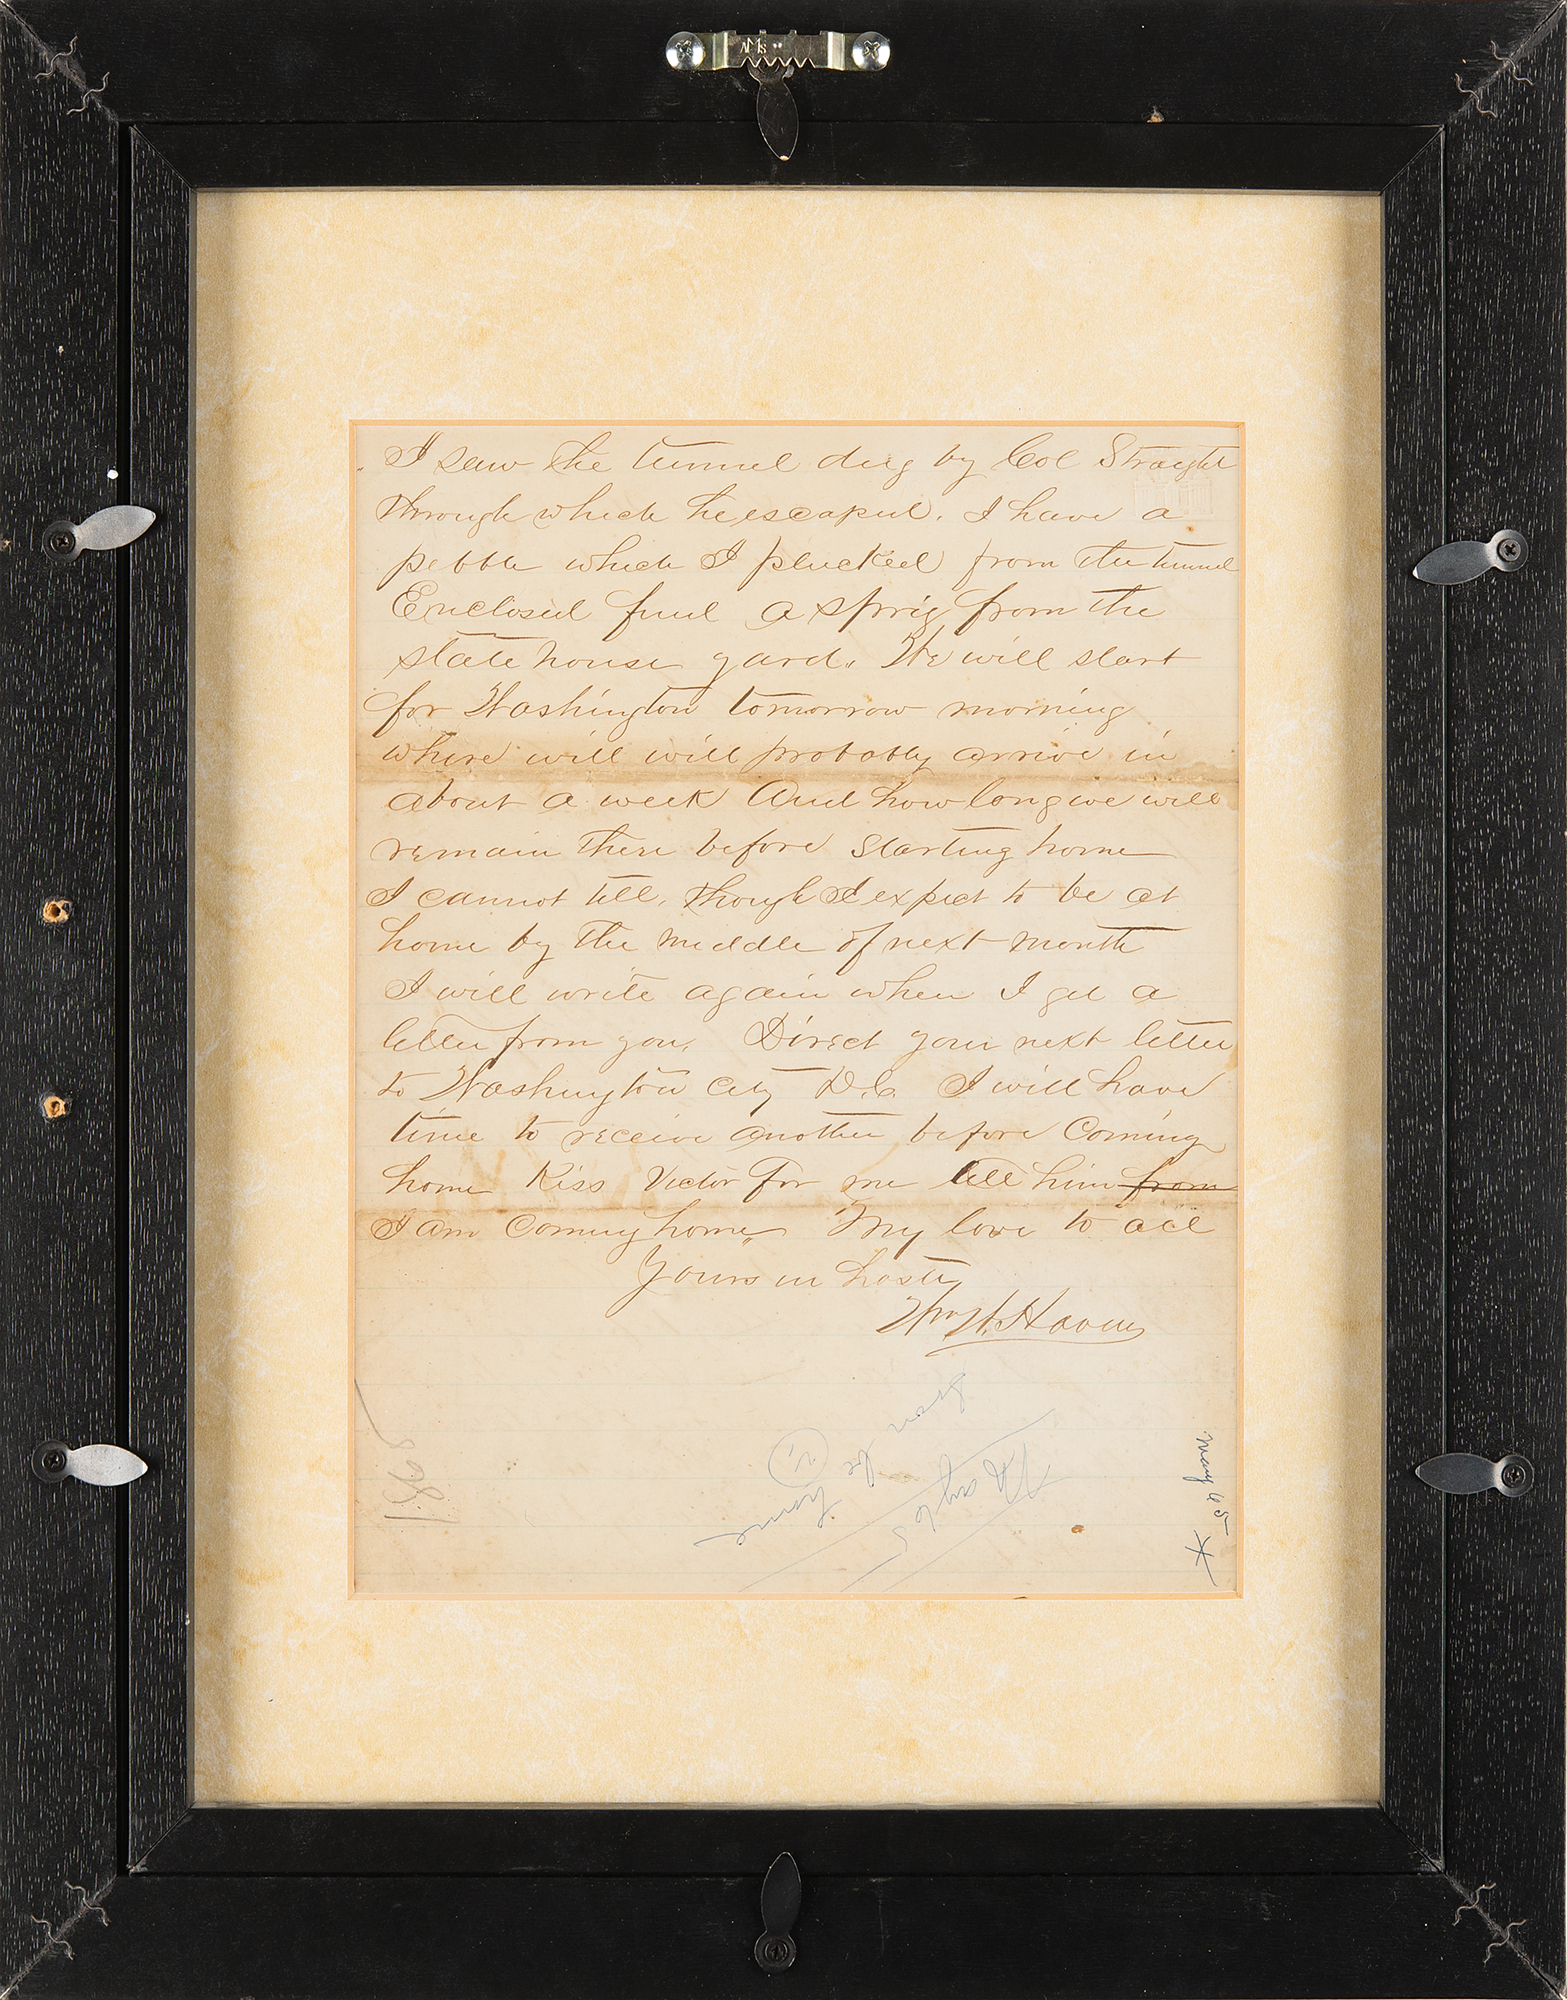 AMS
I saw the tunnel dug by Col Straight
through which he escaped. I have a
pebble which I plucked from the tunnel
Enclosed find a sprig from the
state house yard. We will start
for Washington tomorrow morning
where will will probably arrive in
about a week And how long we will
remain there before starting home
I cannot tell, though I expect to be at
home by the middle of next month
I will write again when I get a
letter from you. Direct your next letter
to Washington City D.C. I will have
time to receive another before Coming
home Kiss Victor for me tell him from
I am Coming home My love to all
Yours in haste
Wm H. Havens
home
May 65
1865
May 65